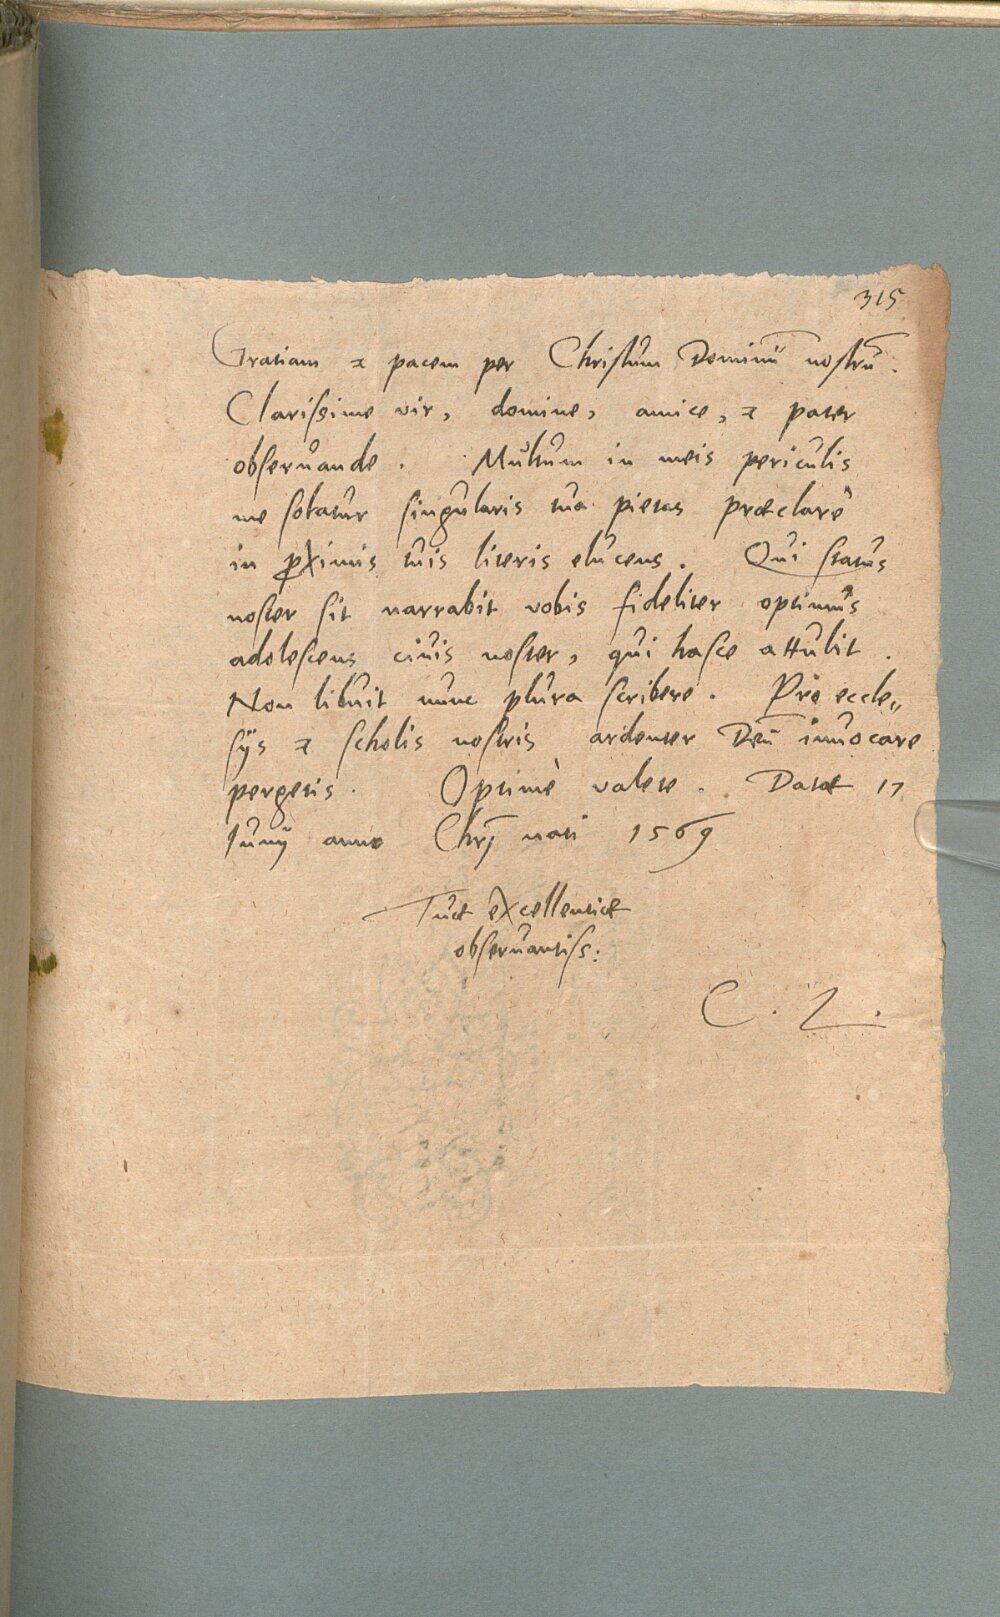 315
Gratiam & pacem per Christum Dominū nostrū.
Clarissime vir, domine, amice, & pater
obseruande. Multum in meis periculis
me solatur singularis tua pietas præclarè
in proximis tuis literis elucens. Qui status
noster sit narrabit vobis fideliter optimus
adolescens ciuis noster, qui hasce attulit.
Non libuit nunc plura scribere. Pro eccle„
sijs & scholis nostris ardenter Deū inuocare
pergetis. Optimè valete. Datæ 17
Junij anno Chrj nati 1569
Tuæ excellentiæ
obseruantiss:
C. L.